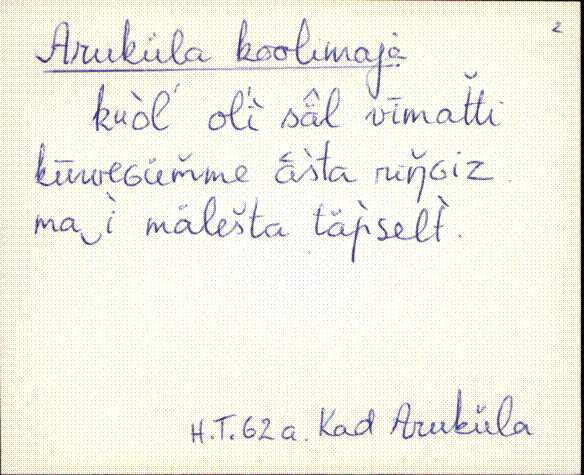 2
Aruküla koolimaja
kuòl' oĺi sä̂l vīmatti
kūweGüm̆me ásta rīŋ̆Giz
ma‿i mälešta täp̀selt̀.
H.T. 62 a. Kad Aruküla